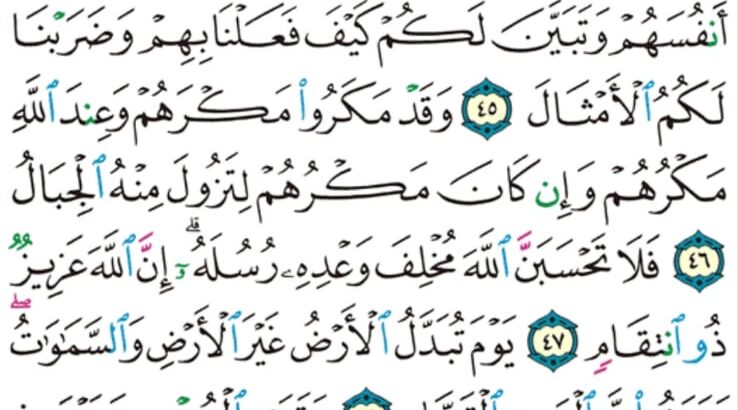 أَنفُسَهُمْ وَتَبَيَّنَ لَكُمْ كَيْفَ فَعَلْنَا بِهِمْ وَضَرَبْنَا
لَكُمُ ٱلْأَمْثَالَ ٤٥ وَقَدْ مَكَرُوا۟ مَكْرَهُمْ وَعِندَ ٱللَّهِ
مَكْرُهُمْ وَإِن كَانَ مَكْرُهُمْ لِتَزُولَ مِنْهُ ٱلْجِبَالُ
٤٦ فَلَا تَحْسَبَنَّ ٱللَّهَ مُخْلِفَ وَعْدِهِۦ رُسُلَهُۥٓ ۗ إِنَّ ٱللَّهَ عَزِيزٌ
ذُو ٱنتِقَامٍ ٤٧ يَوْمَ تُبَدَّلُ ٱلْأَرْضُ غَيْرَ ٱلْأَرْضِ وَٱلسَّمَٰوَٰتُ ۖ